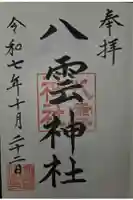 奉拝
八雲神社
令和七年十月二十二日